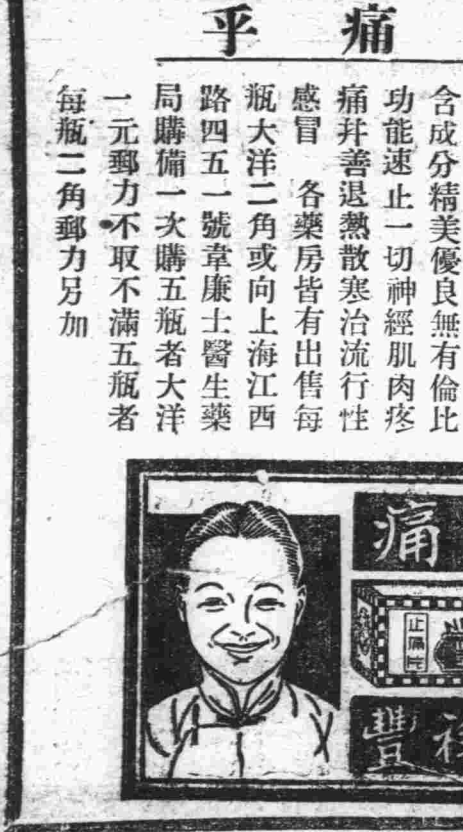 痛乎
含成分精美優良無有倫比
功能速止一切神經肌肉疼
痛幷善退熱散寒治流行性
感冒 各藥房皆有出售每
瓶大洋二角或向上海江西
路四五一號韋廉士醫生藥
局購備一次購五瓶者大洋
一元郵力不取不滿五瓶者
每瓶二角郵力另加
痛
止痛片
豐